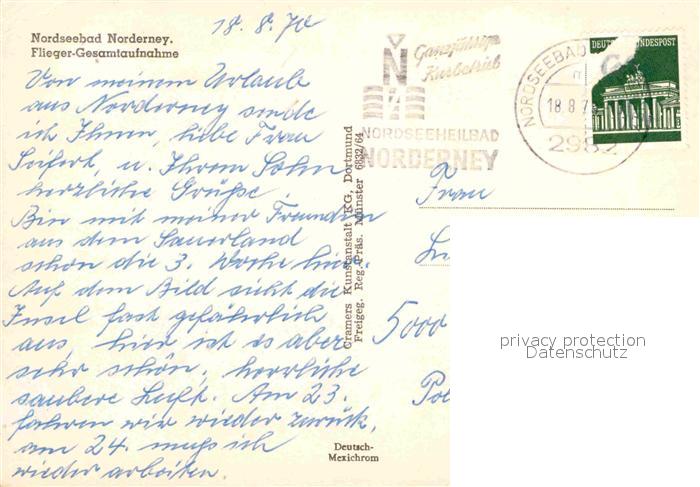 Nordseebad Norderney.
Flieger-Gesamtaufnahme
18. 8. 70
Von meinem Urlaube
aus Norderney sende
ich Ihnen, liebe Frau
Seifert, u. Ihrem Sohn
herzliche Grüße.
Bin mit meiner Freundin
aus dem Sauerland
schon die 3. Woche hier.
Auf dem Bild sieht die
Insel fast gefährlich
aus, hier ist es aber
sehr schön, herrliche
saubere Luft. Am 23.
fahren wir wieder zurück,
am 24. muss ich
wieder arbeiten.
Cramers Kunstanstalt KG, Dortmund
Freigeg. Reg.-Präs. Münster 6832/64
Deutsch-
Mexichrom
N
Ganzjähriger
Kurbetrieb
NORDSEEHEILBAD
NORDERNEY
NORDSEEBAD
18.8.7
2982
DEUTSCHE BUNDESPOST
Frau
5000
privacy protection
Datenschutz